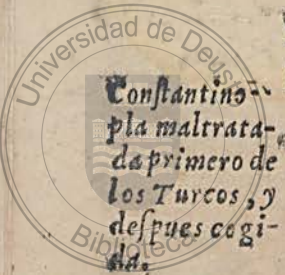 Universidad de Deusto
Conſtantino-
pla maltrata-
da primero de
los Turcos, y
deſpues cogi-
da.
Biblioteca